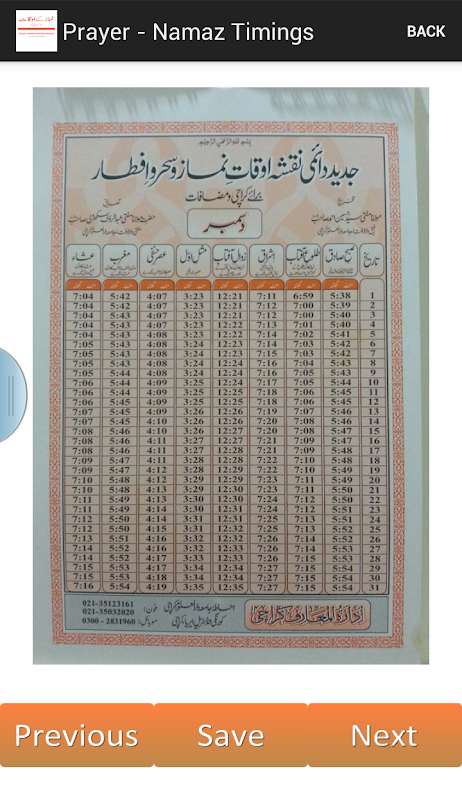 Prayer - Namaz Timings
BACK
جدید دائمی نقشہ اوقاتِ نماز و سحر و افطار
برائے کراچی و مضافات
دسمبر
تاریخ صبح صادق طلوع آفتاب اشراق زوال آفتاب مثل اول عصر حنفی مغرب عشاء
1 5:38 6:59 7:11 12:21 3:23 4:07 5:42 7:04
2 5:39 7:00 7:12 12:21 3:23 4:07 5:42 7:04
3 5:40 7:00 7:12 12:21 3:23 4:07 5:43 7:04
4 5:40 7:01 7:13 12:22 3:23 4:07 5:43 7:04
5 5:41 7:02 7:14 12:22 3:22 4:08 5:43 7:04
6 5:42 7:03 7:14 12:23 3:24 4:08 5:43 7:05
7 5:42 7:03 7:15 12:23 3:24 4:08 5:43 7:05
8 5:43 7:04 7:16 12:24 3:24 4:08 5:43 7:05
9 5:43 7:05 7:16 12:24 3:24 4:08 5:44 7:05
10 5:44 7:05 7:17 12:24 3:25 4:09 5:44 7:06
11 5:45 7:06 7:18 12:25 3:25 4:09 5:44 7:06
12 5:45 7:06 7:18 12:25 3:25 4:09 5:45 7:06
13 5:46 7:07 7:19 12:26 3:26 4:09 5:45 7:07
14 5:46 7:08 7:20 12:26 3:26 4:10 5:45 7:07
15 5:47 7:08 7:20 12:27 3:26 4:10 5:46 7:08
16 5:48 7:09 7:21 12:27 3:27 4:11 5:46 7:08
17 5:48 7:09 7:21 12:28 3:27 4:11 5:46 7:08
18 5:48 7:10 7:22 12:28 3:28 4:11 5:47 7:09
19 5:49 7:10 7:22 12:29 3:28 4:12 5:47 7:09
20 5:49 7:11 7:23 12:29 3:29 4:12 5:48 7:10
21 5:50 7:11 7:23 12:30 3:29 4:13 5:48 7:10
22 5:50 7:12 7:24 12:30 3:30 4:13 5:49 7:11
23 5:51 7:12 7:24 12:31 3:30 4:14 5:49 7:11
24 5:51 7:13 7:25 12:31 3:31 4:14 5:50 7:12
25 5:52 7:13 7:25 12:32 3:31 4:15 5:50 7:12
26 5:52 7:14 7:26 12:32 3:32 4:16 5:51 7:13
27 5:53 7:14 7:26 12:33 3:32 4:16 5:52 7:14
28 5:53 7:15 7:26 12:33 3:33 4:17 5:52 7:14
29 5:54 7:15 7:27 12:34 3:33 4:17 5:53 7:15
30 5:54 7:15 7:27 12:34 3:34 4:18 5:53 7:15
31 5:54 7:15 7:27 12:35 3:35 4:19 5:54 7:16
ادارۃ المعارف کراچی
فون: 021-35123161
021-35032020
موبائل: 0300 - 2831960
Previous
Save
Next